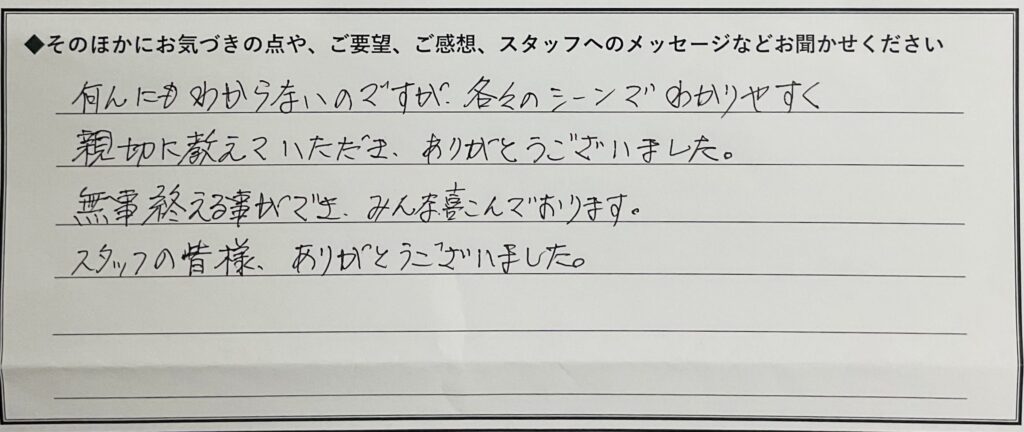 ◆そのほかにお気づきの点や、ご要望、ご感想、スタッフへのメッセージなどお聞かせください
何んにもわからないのですが、各々のシーンでわかりやすく
親切に教えていただき、ありがとうございました。
無事終える事ができ、みんな喜こんでおります。
スタッフの皆様、ありがとうございました。